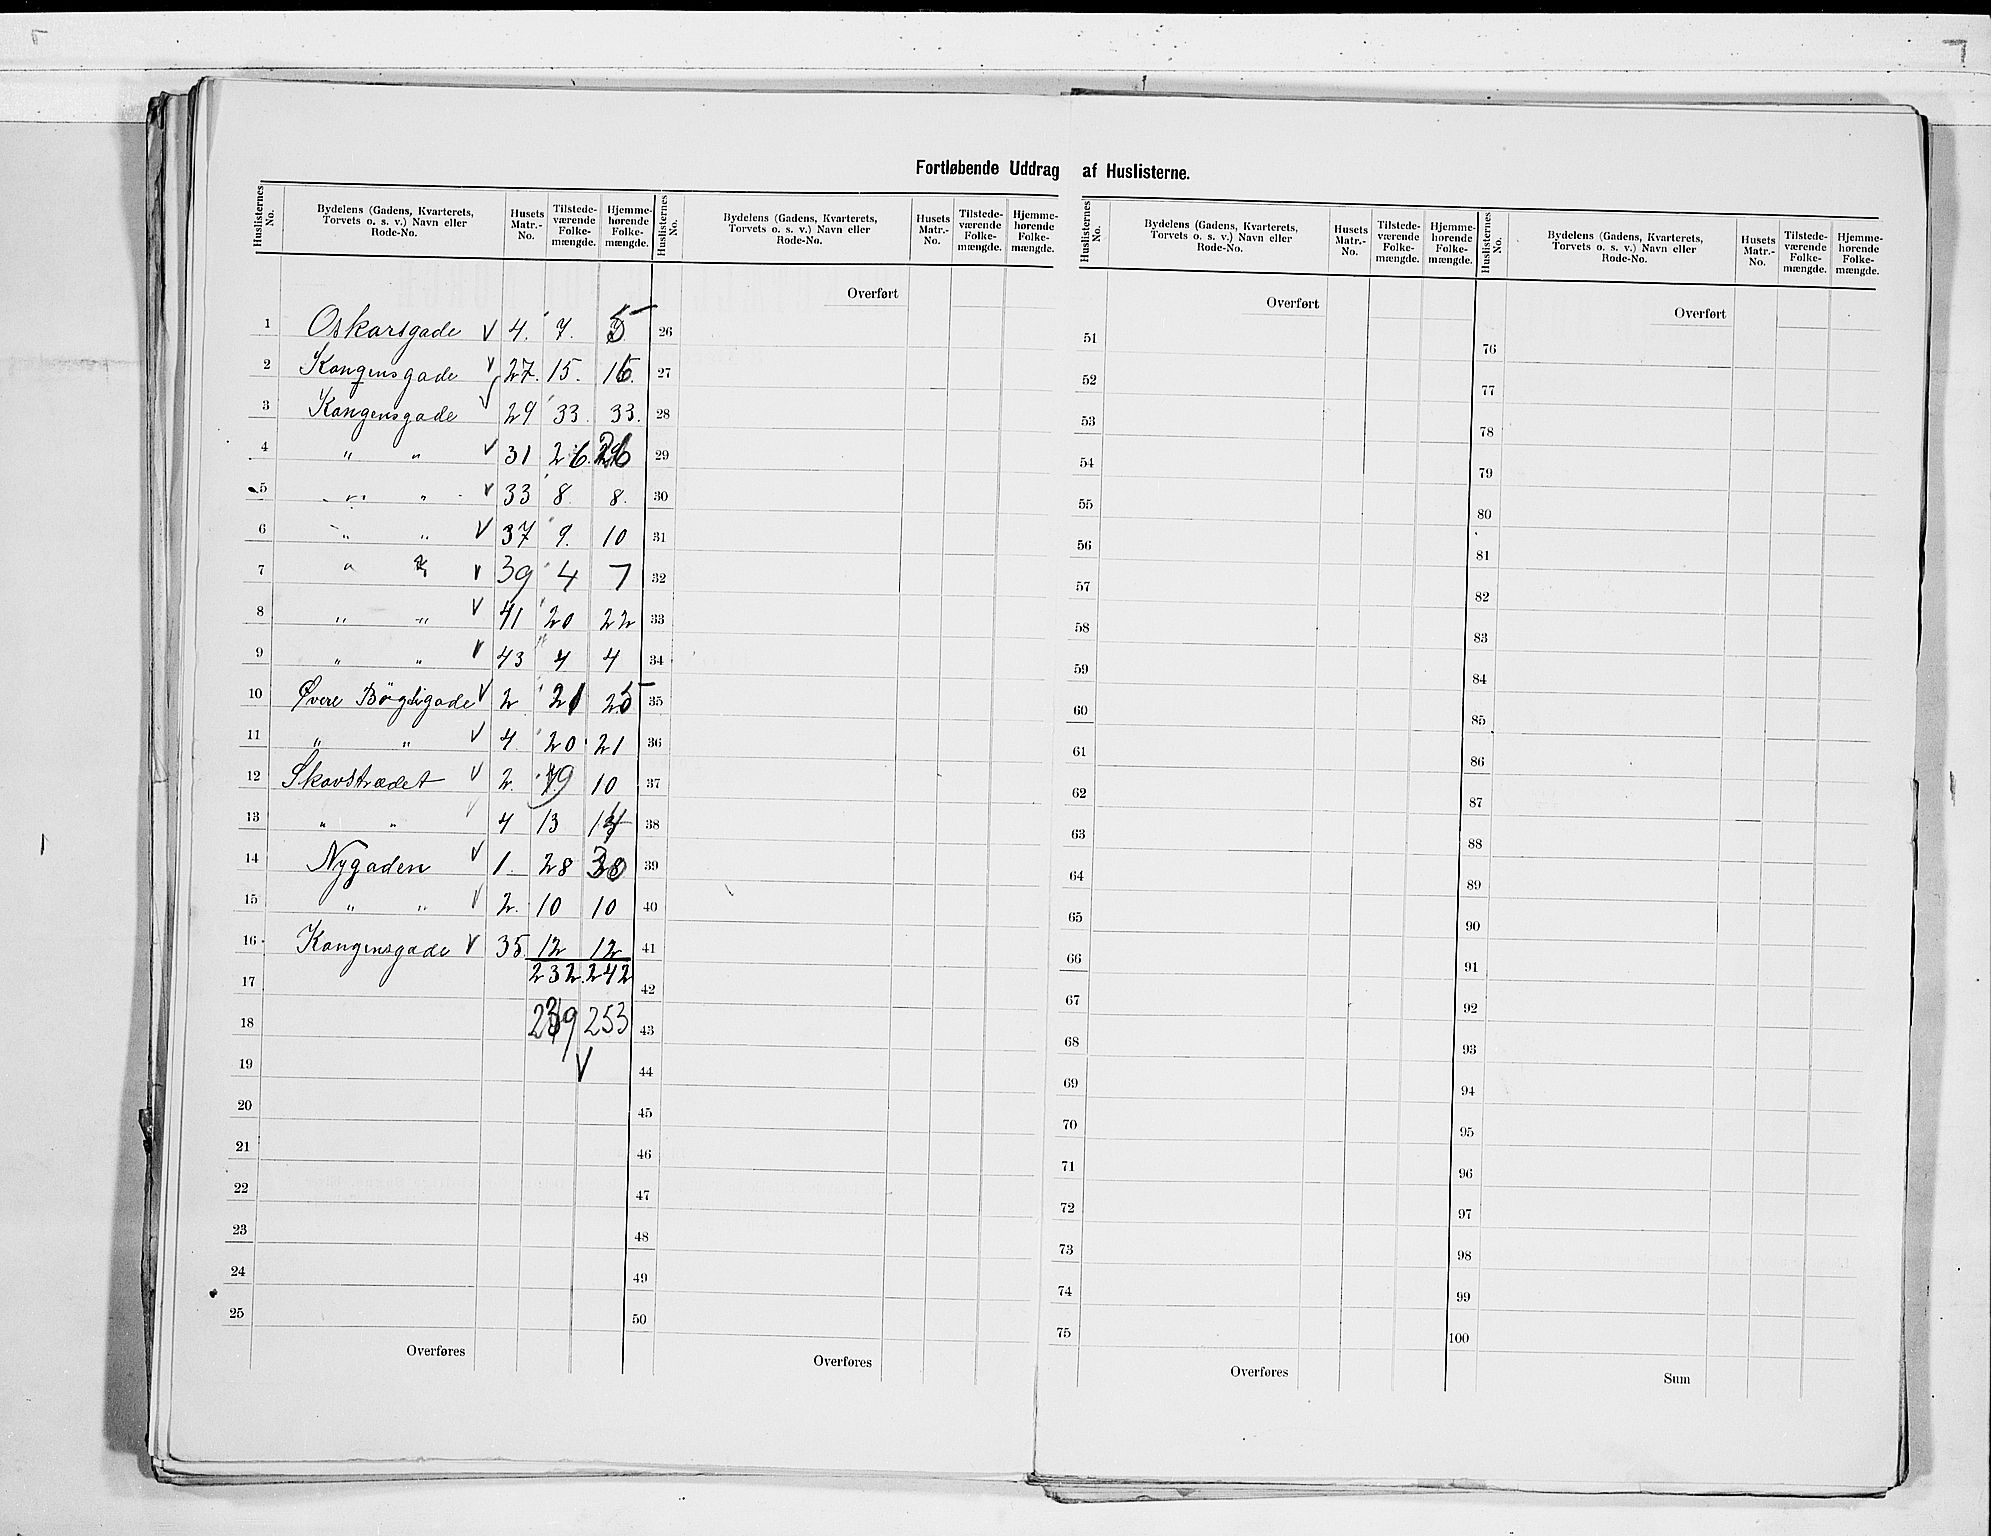 Fortløbende Uddrag af Huslisterne.
Huslisternes No. Bydelens (Gadens, Kvarterets, Torvets o. s. v.) Navn eller Rode-No. Husets Matr.-No. Tilstede-værende Folke-mængde. Hjemme-hørende Folke-mængde.
1 Oskarsgade V 4. 7. 5
2 Kongensgade V 27. 15. 16.
3 Kongensgade V 29 33. 33.
4 " " V 31 26. 26
5 " " V 33 8. 8.
6 " " V 37 9. 10
7 " " V 39 4 7
8 " " V 41 20 22
9 " " V 43 4 4
10 Øvere V 2 21 25
11 " " V 4. 20 21
12 Skovstrædet V 2. 19 10
13 " " V 4 13 14
14 Nygaden V 1. 28 30
15 " " V 2. 10 10
16 Kongensgade V 35. 12 12
17 232. 242
18 239 253
19 V
20
21
22
23
24
25
Overføres
Huslisternes No. Bydelens (Gadens, Kvarterets, Torvets o. s. v.) Navn eller Rode-No. Husets Matr.-No. Tilstede-værende Folke-mængde. Hjemme-hørende Folke-mængde.
Overført
26
27
28
29
30
31
32
33
34
35
36
37
38
39
40
41
42
43
44
45
46
47
48
49
50
Overføres
Huslisternes No. Bydelens (Gadens, Kvarterets, Torvets o. s. v.) Navn eller Rode-No. Husets Matr.-No. Tilstede-værende Folke-mængde. Hjemme-hørende Folke-mængde.
Overført
51
52
53
54
55
56
57
58
59
60
61
62
63
64
65
66
67
68
69
70
71
72
73
74
75
Overføres
Huslisternes No. Bydelens (Gadens, Kvarterets, Torvets o. s. v.) Navn eller Rode-No. Husets Matr.-No. Tilstede-værende Folke-mængde. Hjemme-hørende Folke-mængde.
Overført
76
77
78
79
80
81
82
83
84
85
86
87
88
89
90
91
92
93
94
95
96
97
98
99
100
Sum